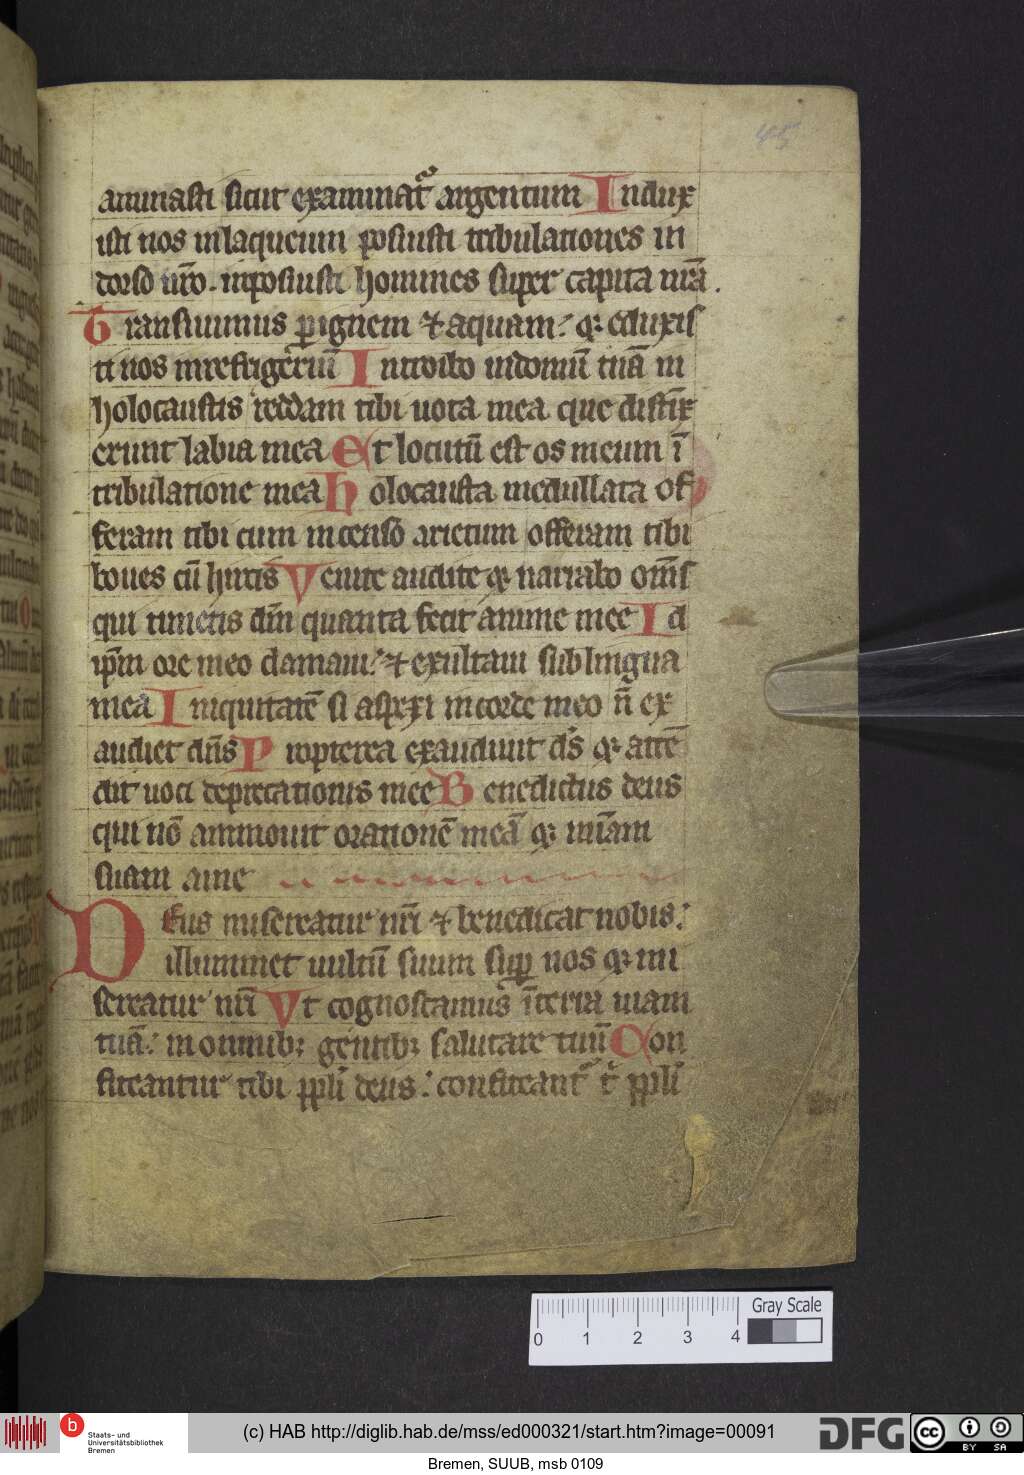 45
aminasti sicut examinat᷑ argentum Indux
isti nos inlaqueum posuisti tribulationes in
dorso nr̄o. inposuisti homines super capita nr̄a.
Transiuimus ꝑignem ⁊ aquam: ꝙ eduxis
ti nos inrefrigeriū Introibo indomū tuā in
holocaustis reddam tibi uota mea que distīx
erunt labia mea Et locutū est os meum ī
tribulatione mea Holocausta medullata of
feram tibi cum incenso arietum offeram tibi
boues cū hircis Venite audite ꝙ narrabo om̄s
qui timetis dm̄ quanta fecit anime mee Ad
ip̄m ore meo clamaui: ⁊ exultaui sub lingua
mea Iniquitatē si aspexi in corde meo n̄ ex
audiet dn̄s Propterea exaudiuit ds̄ ꝙ attē
dit uoci deprecationis mee Benedictus deus
qui nō ammouit orationē meā ꝙ mīam
suam a me
Deus misereatur nr̄i ⁊ benedicat nobis:
illuminet uultū suum suꝑ nos ꝙ mi
sereatur nr̄i Vt cognoscamus īterra uiam
tuā: in omnibꝫ gentibꝫ salutare tuū Con
fiteantur tibi ppl̄i deus: confiteant᷑ t̄ ppl̄i
0 1 2 3 4
Gray Scale
b
Staats- und
Universitätsbibliothek
Bremen
(c) HAB http://diglib.hab.de/mss/ed000321/start.htm?image=00091
DFG
cc BY SA
Bremen, SUUB, msb 0109